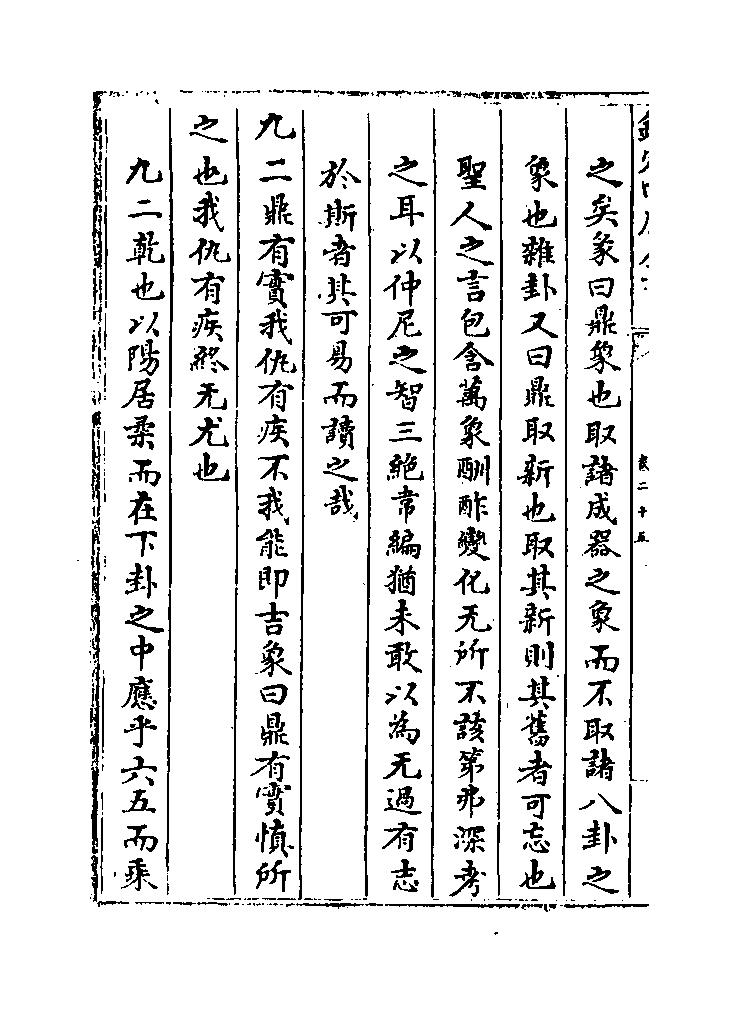 之矣彖曰鼎象也取諸成器之象而不取諸八卦之
象也雜卦又曰鼎取新也取其新則其舊者可忘也
聖人之言包含萬象酬酢變化无所不該第弗深考
之耳以仲尼之智三絶韋編猶未敢以為无過有志
於斯者其可易而讀之哉
九二鼎有實我仇有疾不我能即吉象曰鼎有實慎所
之也我仇有疾終无尤也
九二乾也以陽居柔而在下卦之中應乎六五而乘
卷二十五